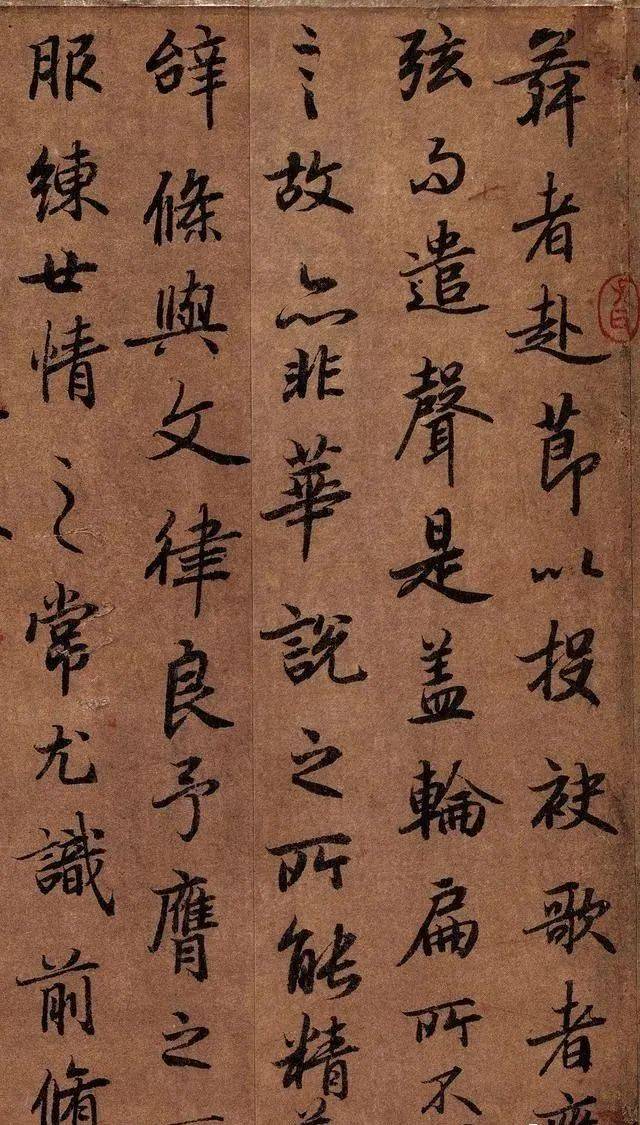 舞者赴節以投袂歌者
弦而遣聲是盖輪扁所不
言故亦非華說之所能精
辝條與文律良予膺之
服練世情之常尤識前脩